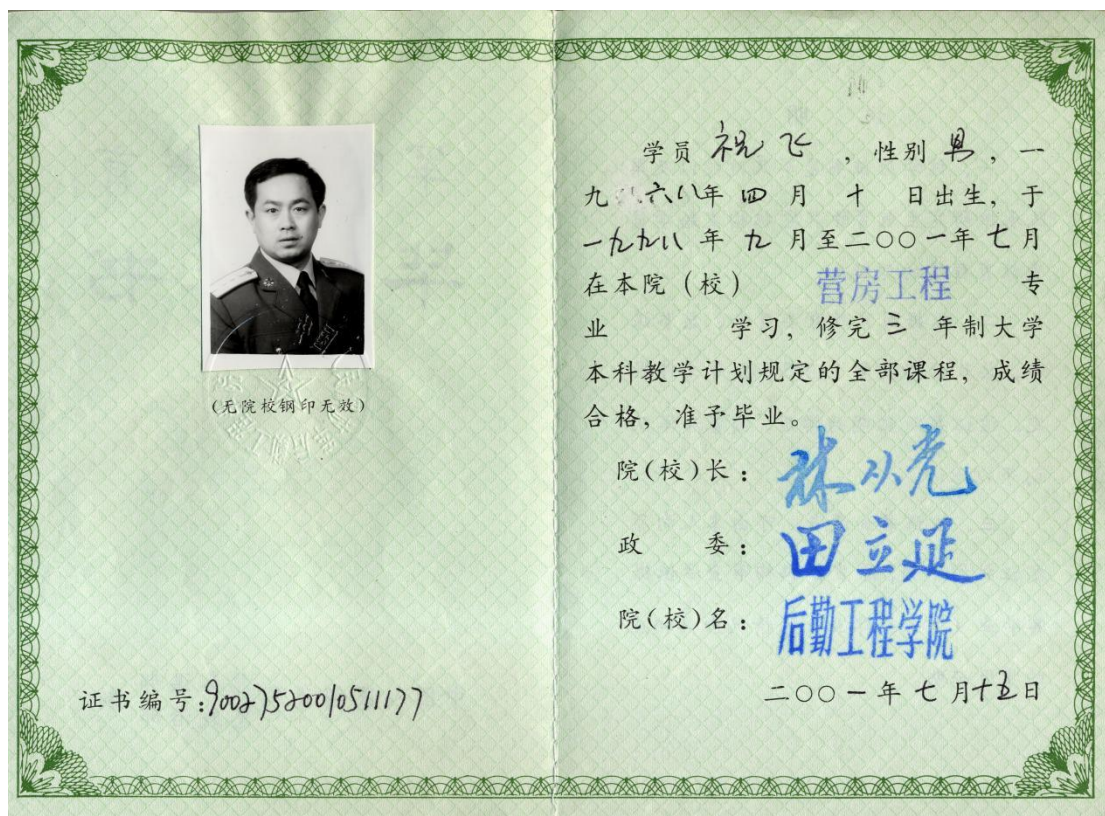 (无院校钢印无效)
证书编号:90027520010511177
学员 祝飞 ,性别 男 ,一
九六八年 四 月 十 日出生,于
一九九八 年 九 月至二〇〇一年 七 月
在本院(校) 营房工程 专
业 学习,修完 三 年制大学
本科教学计划规定的全部课程,成绩
合格,准予毕业。
院(校)长: 林从亮
政 委: 田立延
院(校)名: 后勤工程学院
二〇〇一年 七 月十五日